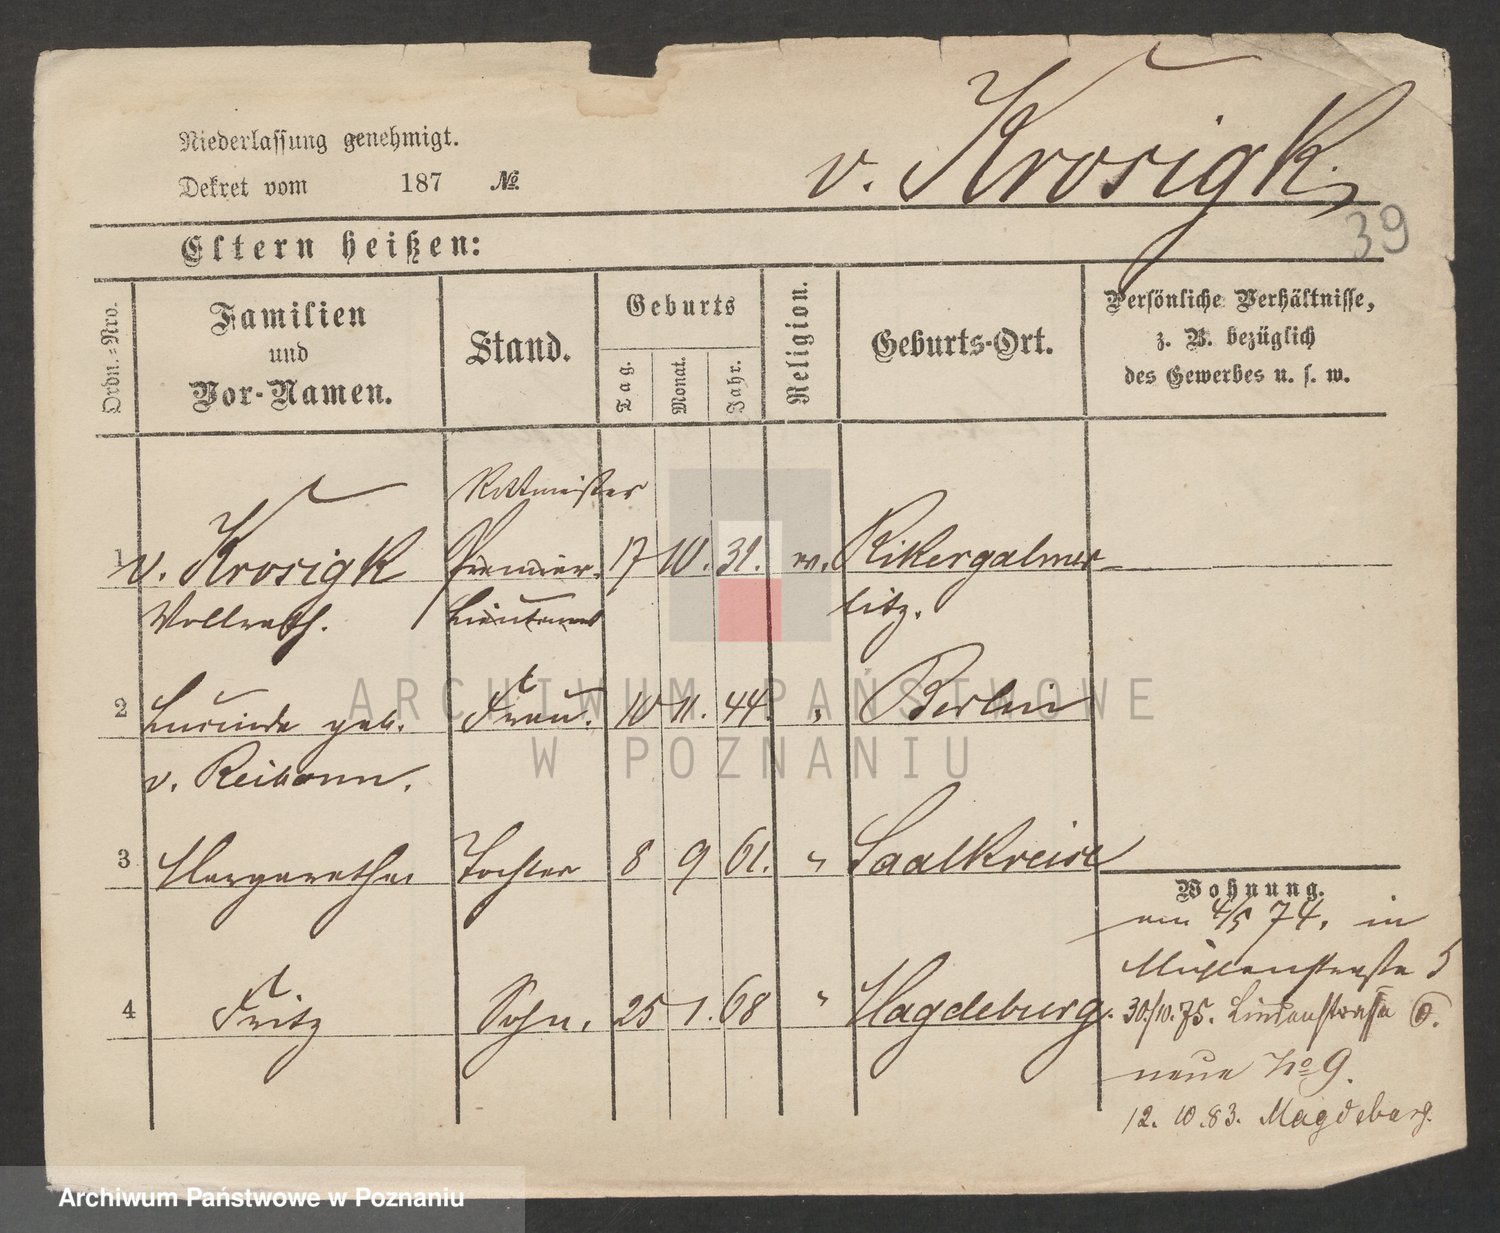 v. Krosigk.
39
Niederlassung genehmigt.
Dekret vom 187 №
Eltern heißen:
Ordn.=Nro.
Familien
und
Vor-Namen.
Stand.
Geburts
Tag.
Monat.
Jahr.
Religion.
Geburts-Ort.
Persönliche Verhältnisse,
z. B. bezüglich
des Gewerbes u. s. w.
Rittmeister
1 v. Krosigk Premier- 17 10. 31. ev.
Vollrath. Lieutenant litz.
2 geb. Frau. 10 11. 44. " Berlin
v.
3 Margarethe Tochter 8 9 61. " Saalkreise
4 Fritz Sohn. 25 1. 68 " Magdeburg.
Wohnung.
am 4/5 74. in
Mühlenstraße 5
30/10.75. Lindenstraße
neue No 9.
12. 10. 83. Magdeburg.
ARCHIWUM PAŃSTWOWE
W POZNANIU
Archiwum Państwowe w Poznaniu